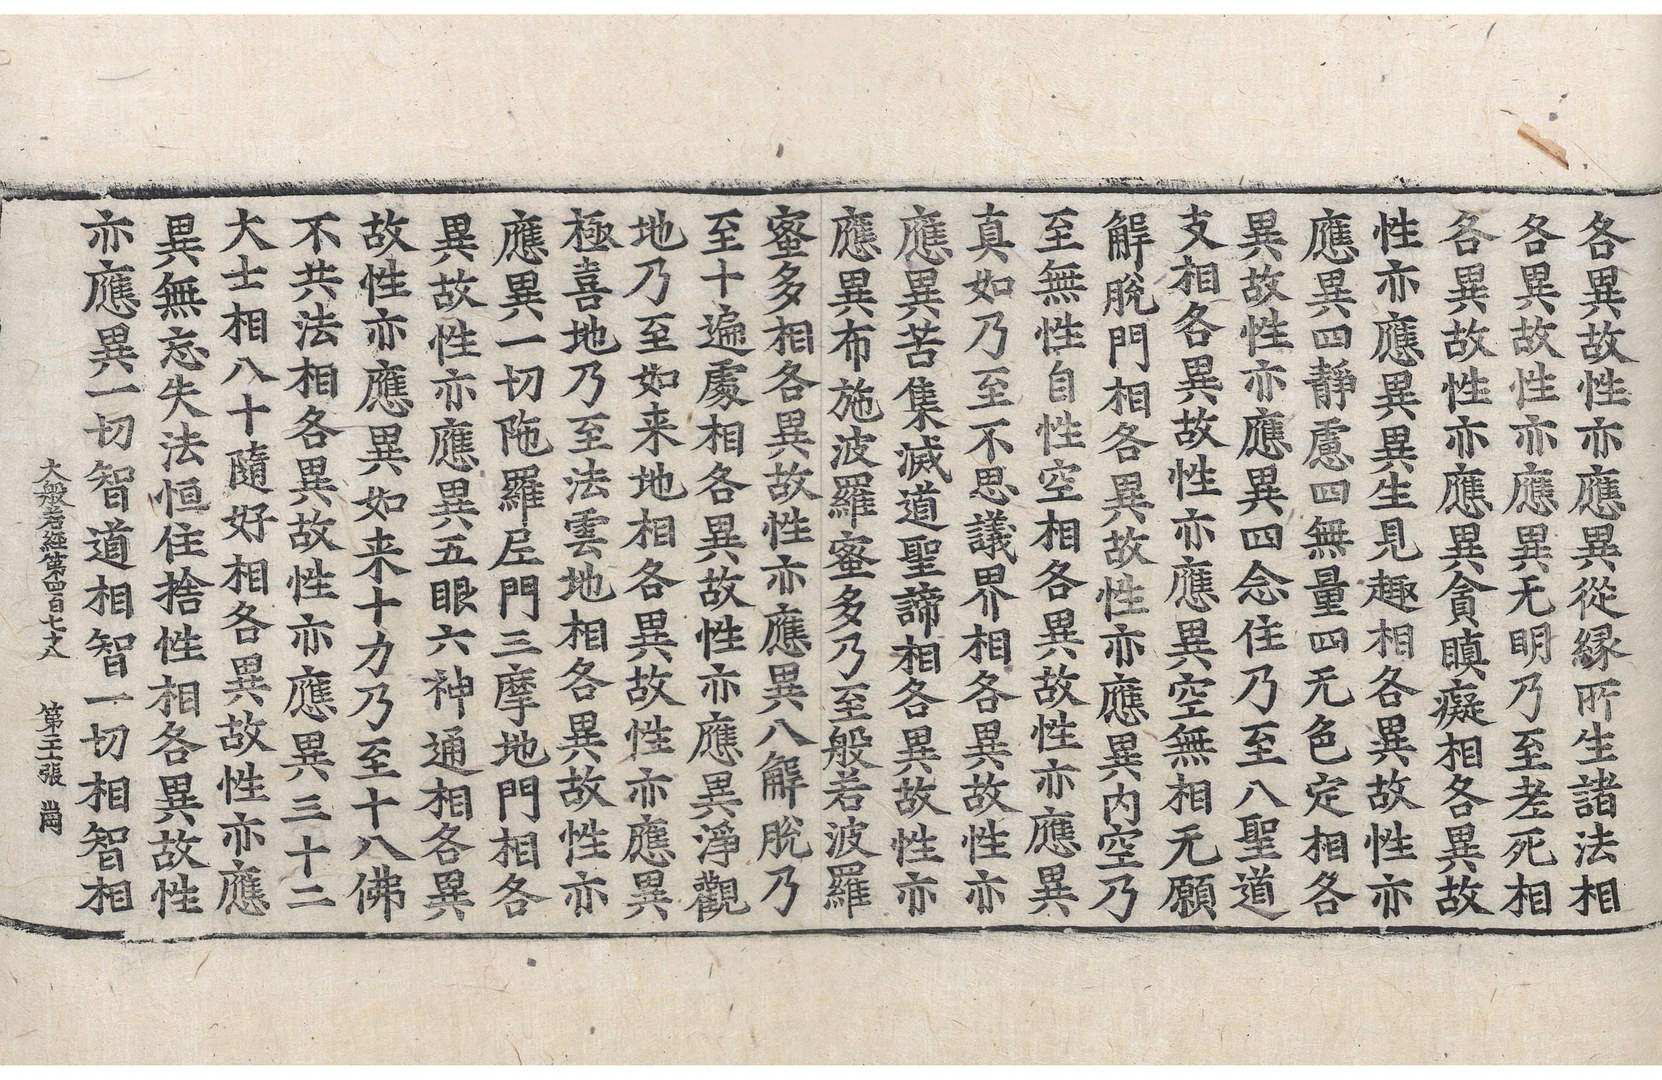 各異故性亦應異從縁所生諸法相
各異故性亦應異无明乃至老死相
各異故性亦應異貪瞋癡相各異故
性亦應異異生見趣相各異故性亦
應異四靜慮四無量四无色定相各
異故性亦應異四念住乃至八聖道
支相各異故性亦應異空無相无願
解脫門相各異故性亦應異內空乃
至無性自性空相各異故性亦應異
真如乃至不思議界相各異故性亦
應異苦集滅道聖諦相各異故性亦
應異布施波羅蜜多乃至般若波羅
蜜多相各異故性亦應異八解脫乃
至十遍處相各異故性亦應異淨觀
地乃至如来地相各異故性亦應異
極喜地乃至法雲地相各異故性亦
應異一切陁羅尼門三摩地門相各
異故性亦應異五眼六神通相各異
故性亦應異如来十力乃至十八佛
不共法相各異故性亦應異三十二
大士相八十隨好相各異故性亦應
異無忘失法恒住捨性相各異故性
亦應異一切智道相智一切相智相
大般若經第四百七十八 第二十張 崗